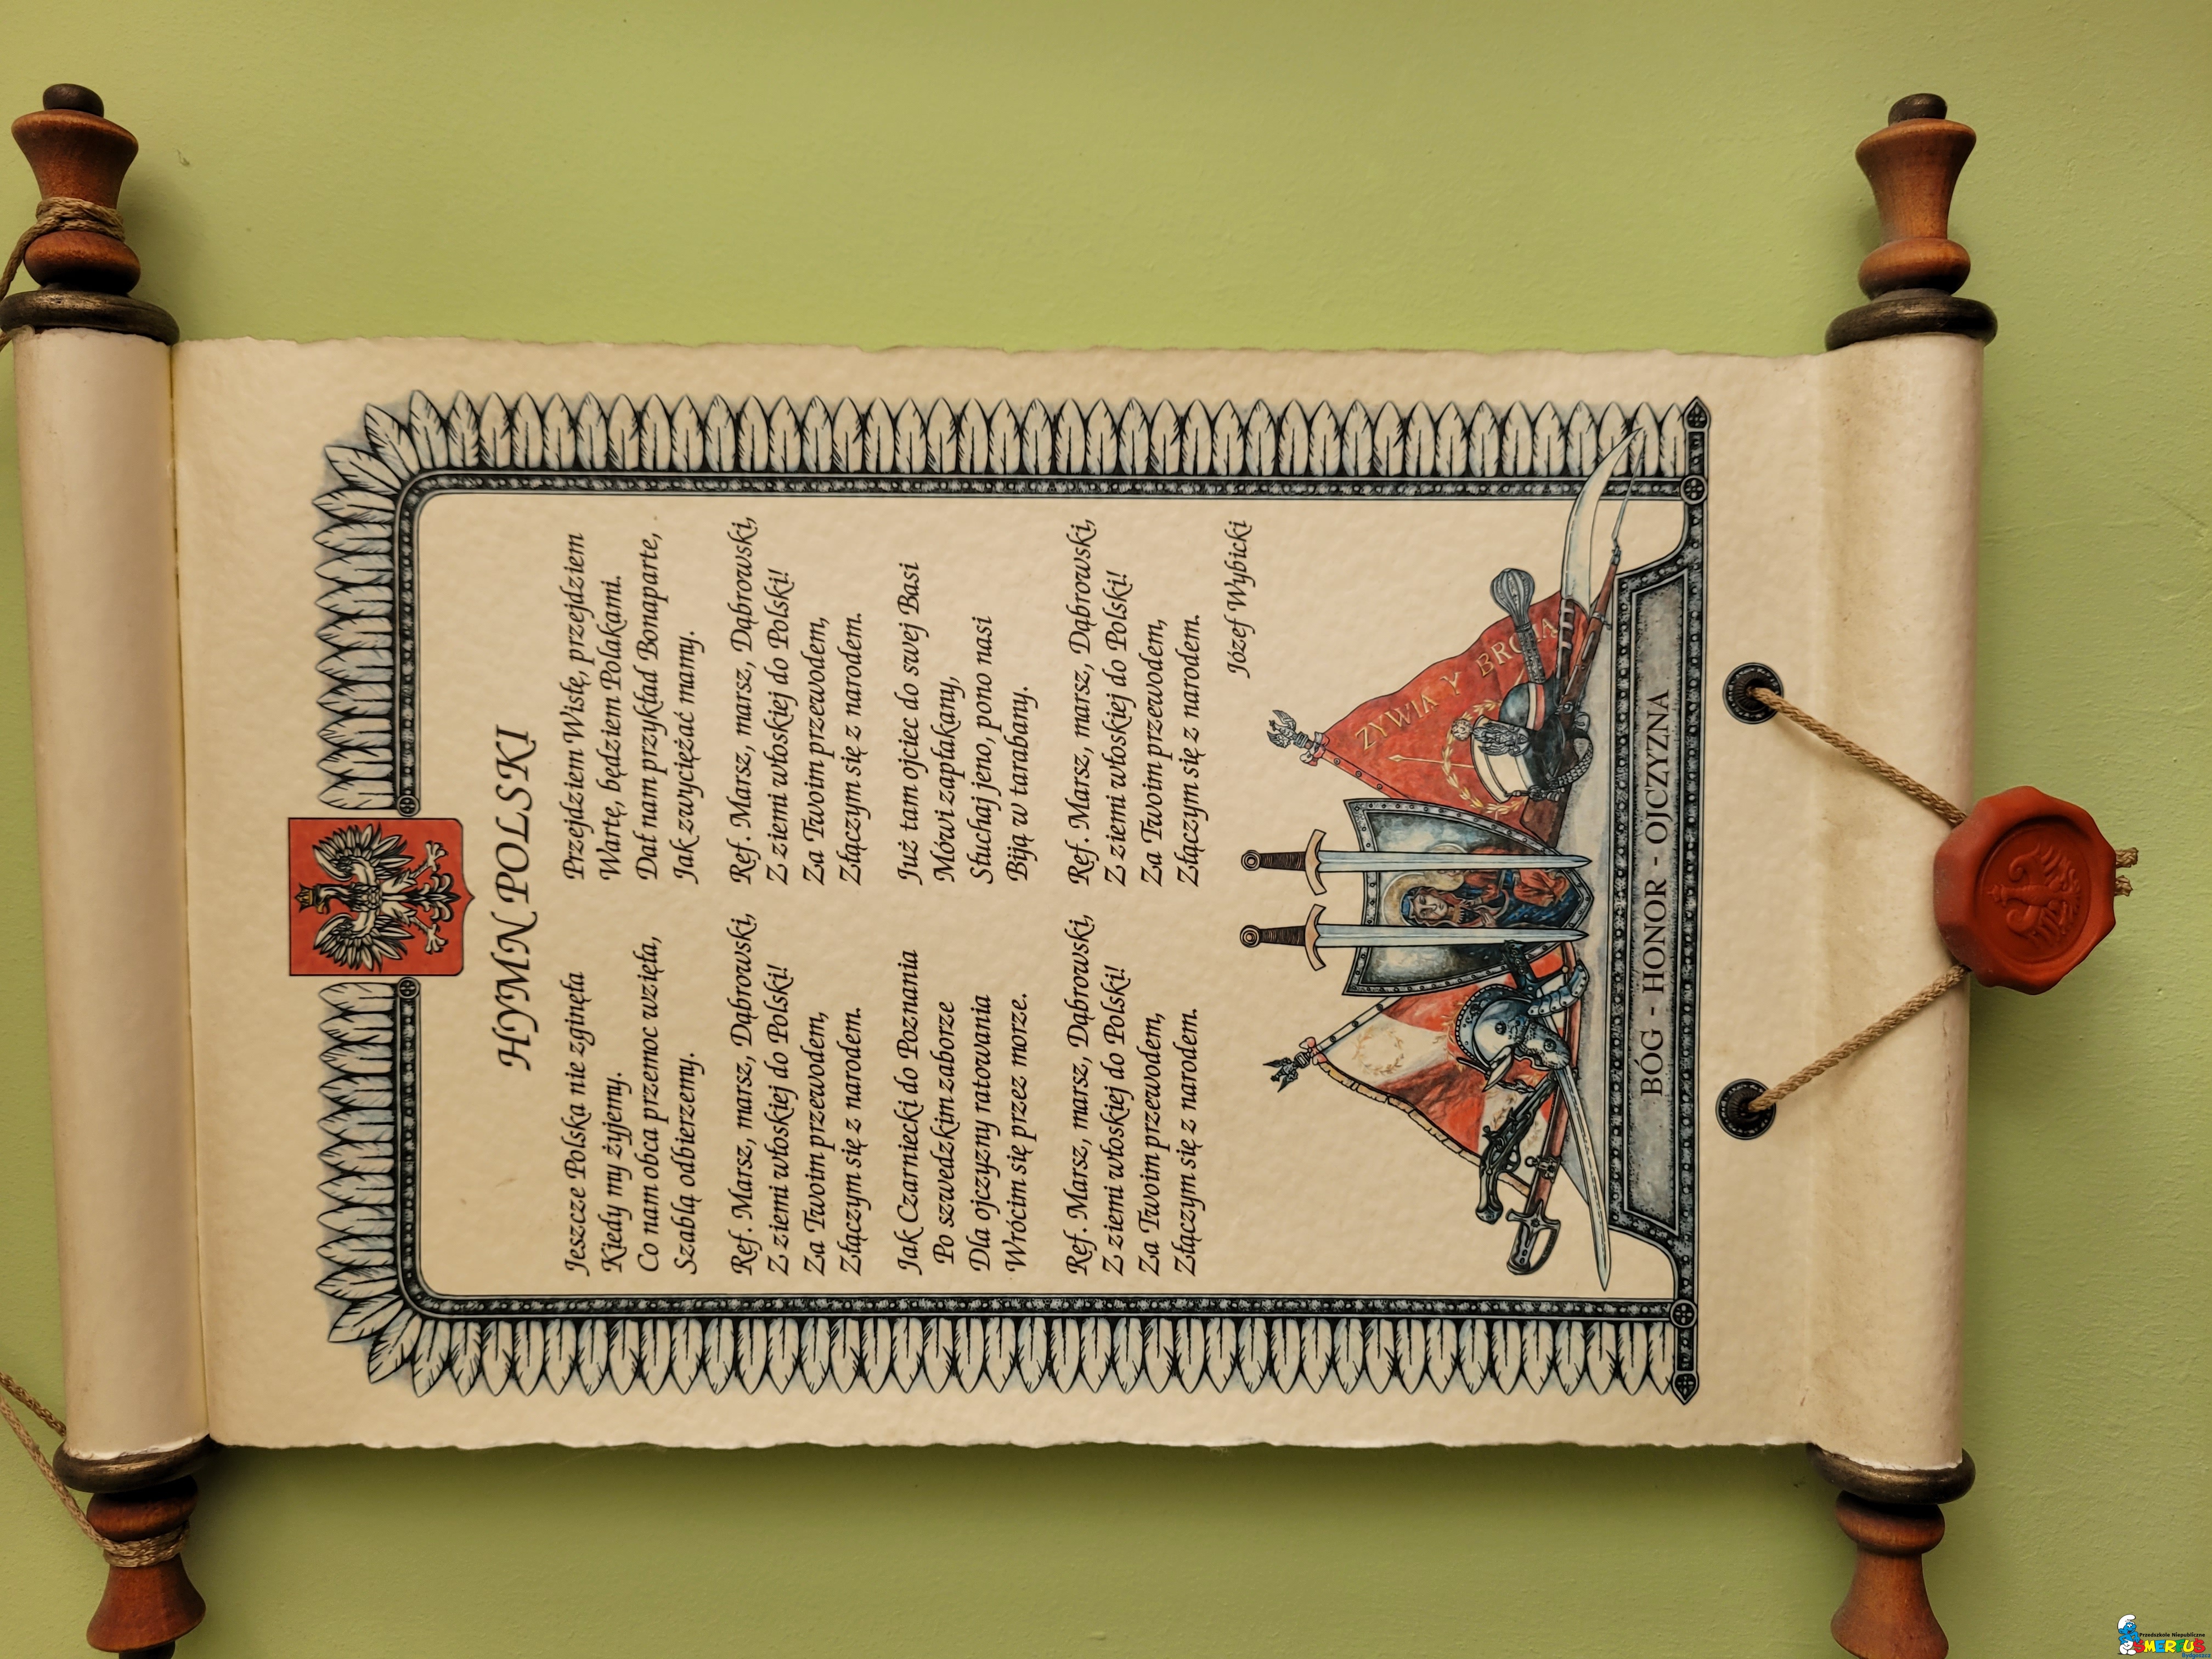 HYMN POLSKI
Jeszcze Polska nie zginęła
Kiedy my żyjemy.
Co nam obca przemoc wzięła,
Szablą odbierzemy.
Ref. Marsz, marsz, Dąbrowski,
Z ziemi włoskiej do Polski!
Za Twoim przewodem,
Złączym się z narodem.
Jak Czarniecki do Poznania
Po szwedzkim zaborze
Dla ojczyzny ratowania
Wrócim się przez morze.
Ref. Marsz, marsz, Dąbrowski,
Z ziemi włoskiej do Polski!
Za Twoim przewodem,
Złączym się z narodem.
Przejdziem Wisłę, przejdziem
Wartę, będziem Polakami.
Dał nam przykład Bonaparte,
Jak zwyciężać mamy.
Ref. Marsz, marsz, Dąbrowski,
Z ziemi włoskiej do Polski!
Za Twoim przewodem,
Złączym się z narodem.
Już tam ojciec do swej Basi
Mówi zapłakany,
Słuchaj jeno, pono nasi
Biją w tarabany.
Ref. Marsz, marsz, Dąbrowski,
Z ziemi włoskiej do Polski!
Za Twoim przewodem,
Złączym się z narodem.
Józef Wybicki
ŻYWIĄ Y BRONIĄ
BÓG - HONOR - OJCZYZNA
Przedszkole Niepubliczne
SMERFUŚ
Bydgoszcz